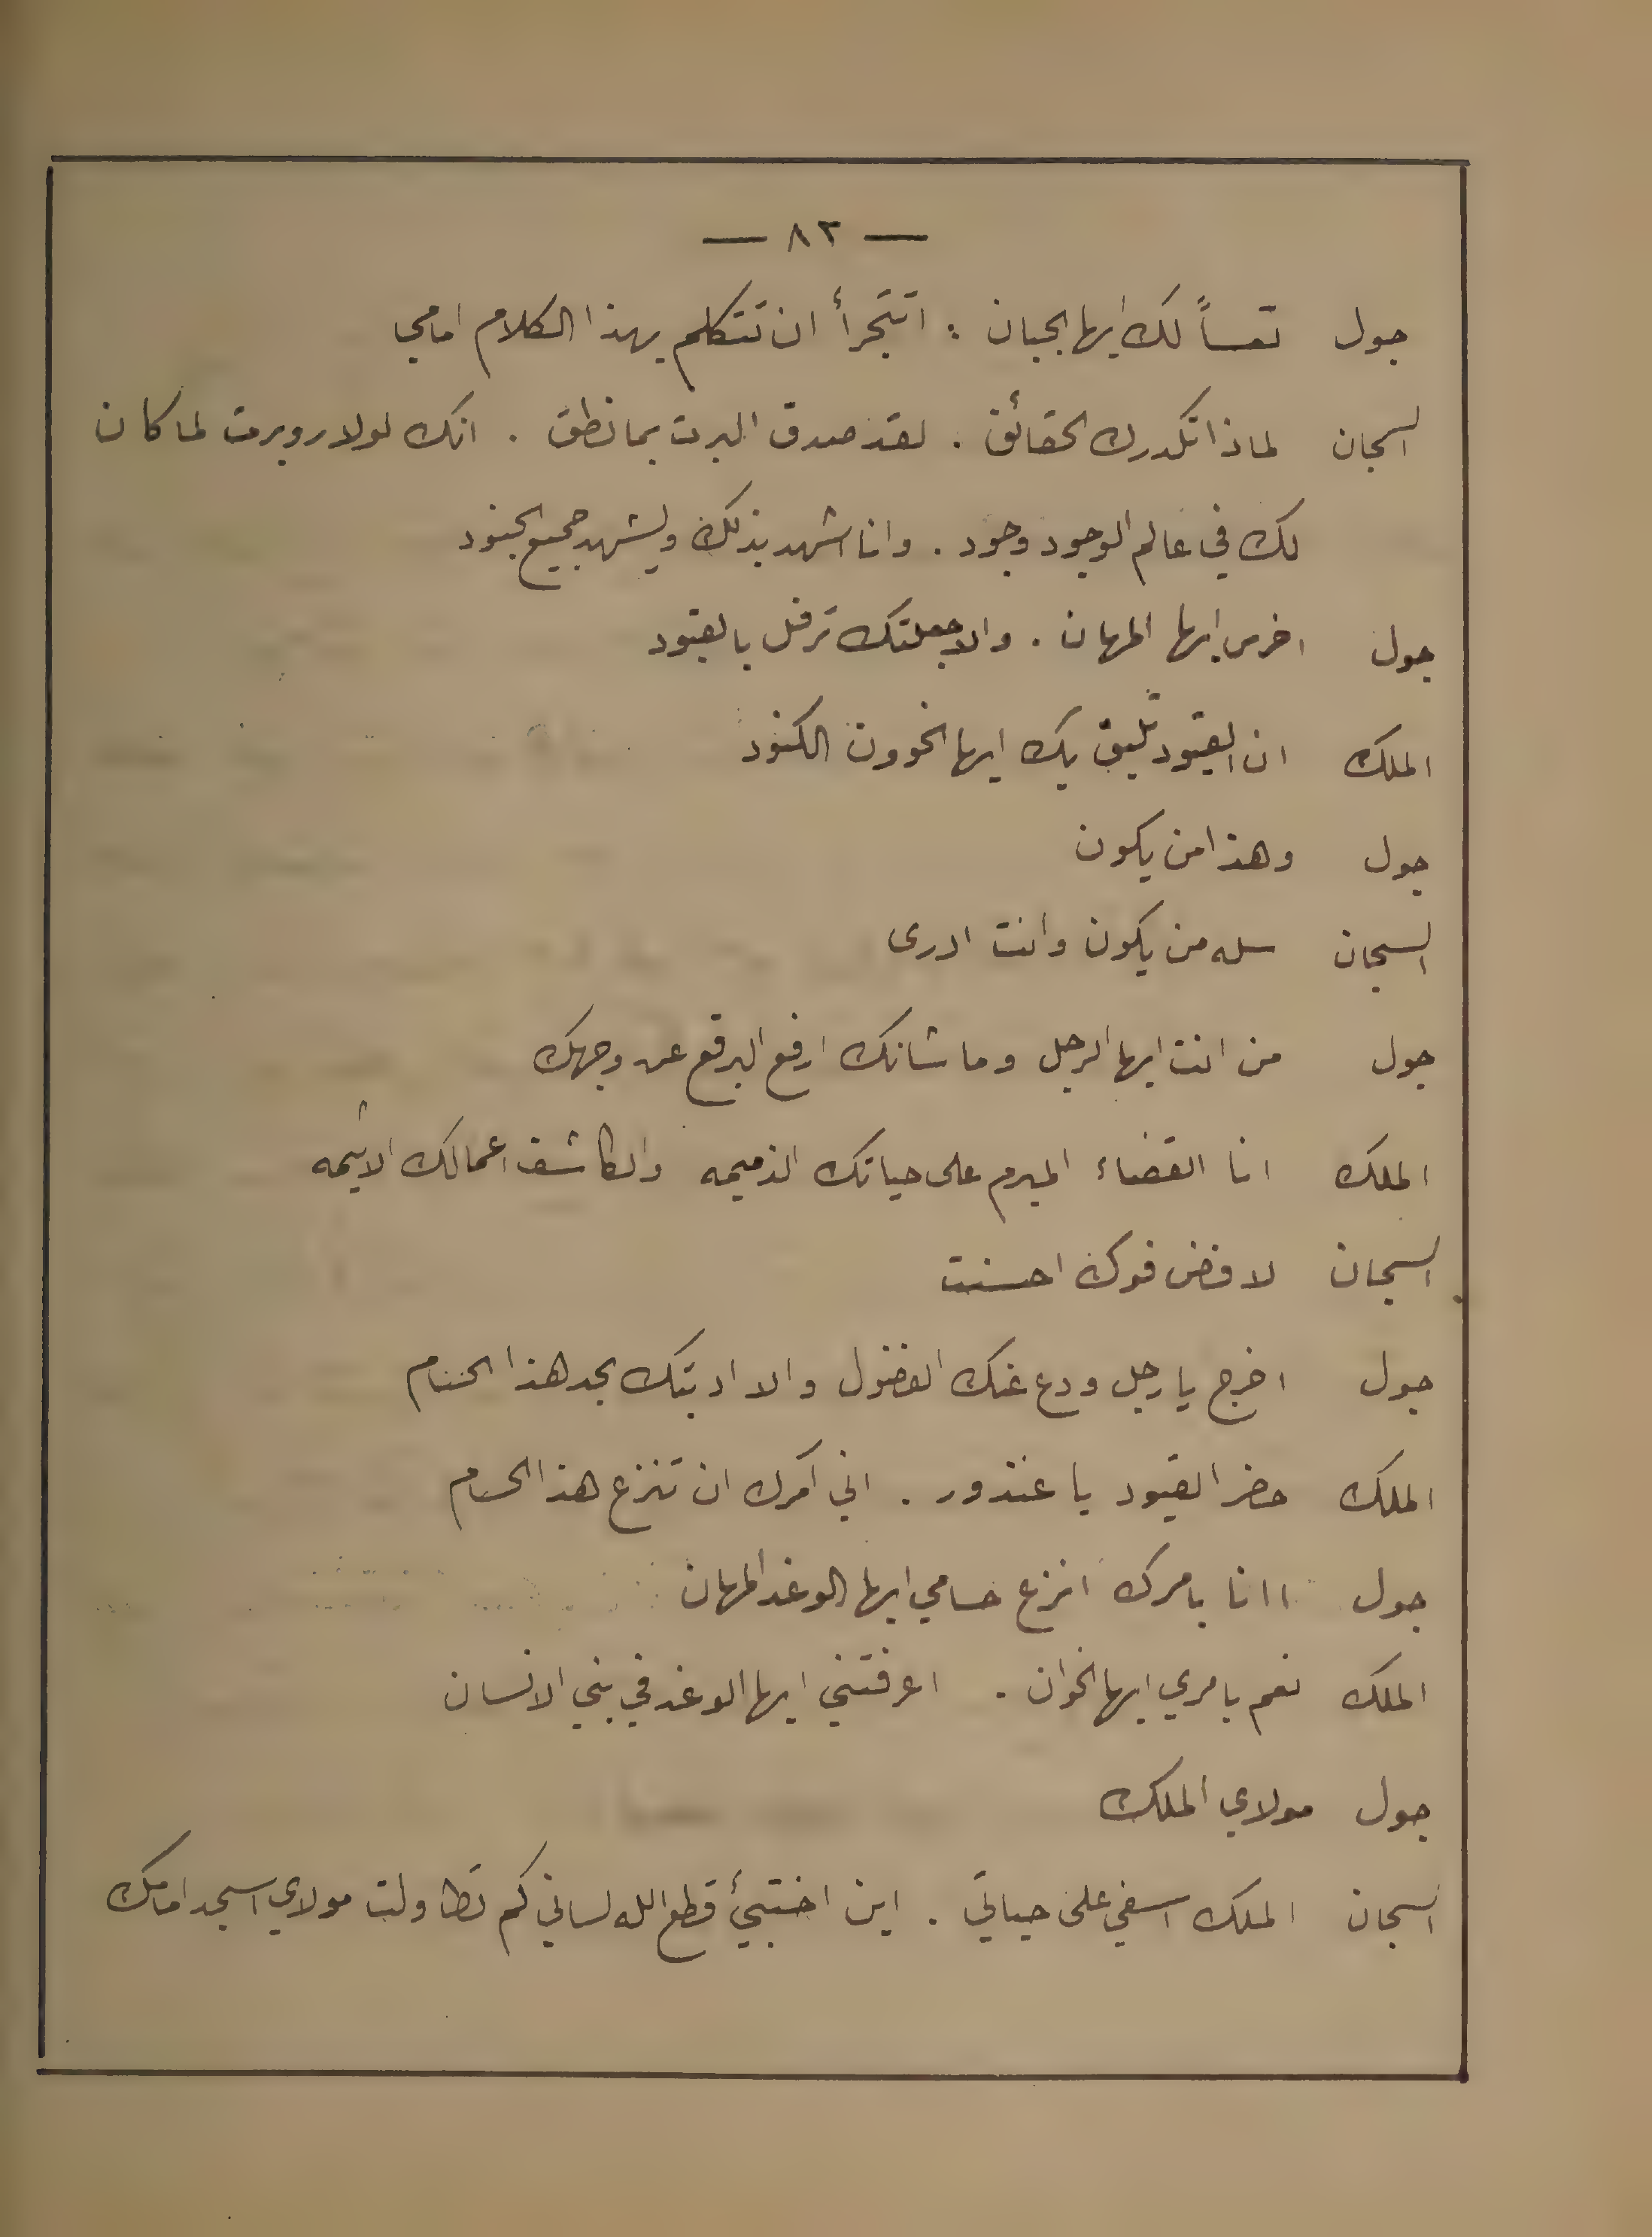 — ٨٢ —
جول تعساً لك ايها الجبان : اتتجرأ ان تتكلم بهذا الكلام امامي
السجان لماذا تكدرك الحقائق . لقد صدق البرت بما نطق . انك لولا روبرت لما كان
لك في عالم الوجود وجود . وانا اشهد بذلك ويشهد جميع الجنود
جول اخرس ايها المهان . والا جعلتك ترفل بالقيود
الملك ان القيود تليق بك ايها الخوون الكنود
جول وهذا من يكون
السجان سله من يكون وانت ادرى
جول من انت ايها الرجل وما شانك ارفع البرقع عن وجهك
الملك انا القضاء المبرم على حياتك الذميمه والكاشف اعمالك الاثيمه
السجان لا فض فوك احسنت
جول اخرج يا رجل ودع عنك الفضول والا ادبتك بحد هذا الحسام
الملك حضر القيود يا غندور . اني آمرك ان تنزع هذا الحسام
جول اانا بامرك انزع حسامي ايها الوغد المهان
الملك نعم بامري ايها الخوان . اعرفتني ايها الوغد في بني الانسان
جول مولاي الملك
السجان الملك اسفي على حياتي . اين اختبئ قطع الله لساني كم تطاولت مولاي اسجد امامك